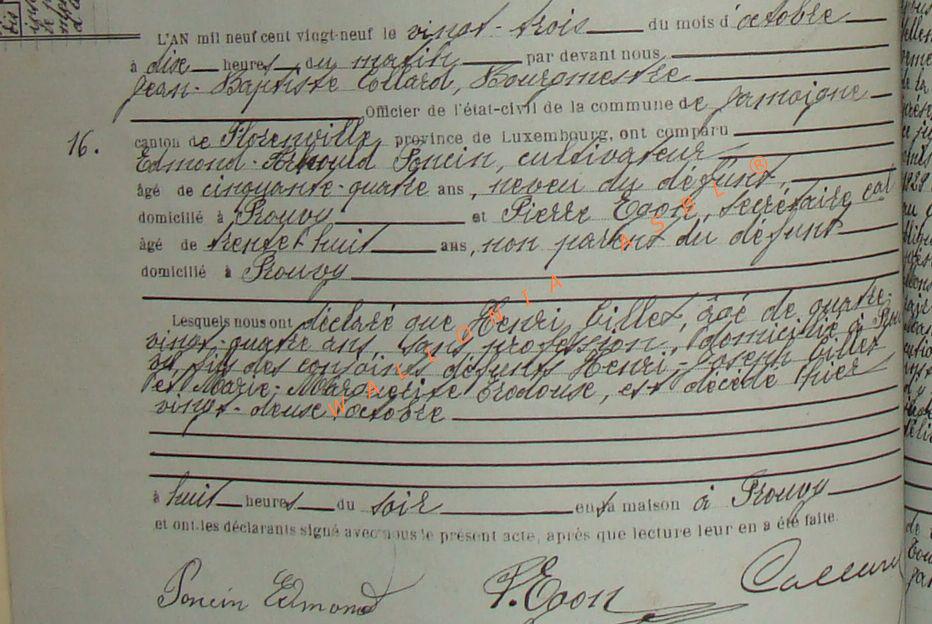 L'AN mil neuf cent vingt-neuf le vingt-trois du mois d'octobre
à dix heures du matin par devant nous
Jean-Baptiste Collard, Bourgmestre
Officier de l'état-civil de la commune de Jamoigne
16. canton de Florenville, province de Luxembourg, ont comparu
Edmond-Arnould Poncin, cultivateur
âgé de cinquante-quatre ans, neveu du défunt,
domicilié à Prouvy et Pierre Egon, secrétaire cal
âgé de trente huit ans, non parent du défunt
domicilié à Prouvy
Lesquels nous ont déclaré que Henri Gillet, âgé de quatre-
vingt-quatre ans, sans profession, domicilié à
fils des conjoints défunts Henri-Joseph Gillet
et Marie-Marguerite est décédé hier
vingt-deux octobre
à huit heures du soir en sa maison à Prouvy
et ont les déclarants signé avec nous le présent acte, après que lecture leur en a été faite.
Poncin Edmond P. Egon Collard
WALLONIA ASBL ®